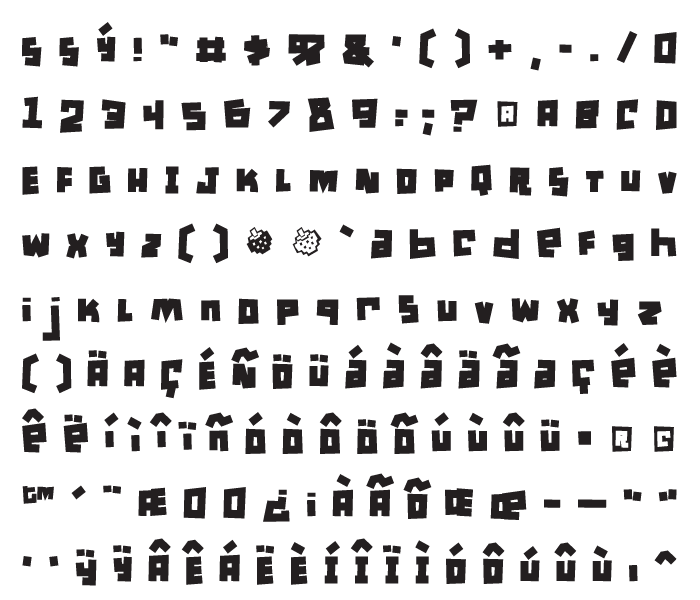 s s ý ! " # $ % & ' ( ) + , - . / 0
1 2 3 4 5 6 7 8 9 : ; ? A A B C D
E F G H I J K L M N O P Q R S T U V
W X Y Z ( ) ` a b c d e f g h
i j k l m n o p q r s u v w x y z
( ) Ä A Ç É Ñ Ö Ü á à â ä ã a ç é è
ê ë í ì î ï ñ ó ò ô ö õ ú ù û ü • R C
™ ´ ¨ Æ O O ¿ i À Ã Õ Œ œ – — " "
' ' ÿ Ÿ Â Ê Á Ë È Í Î Ï Ì Ó Ô Ú Û Ù ı ^